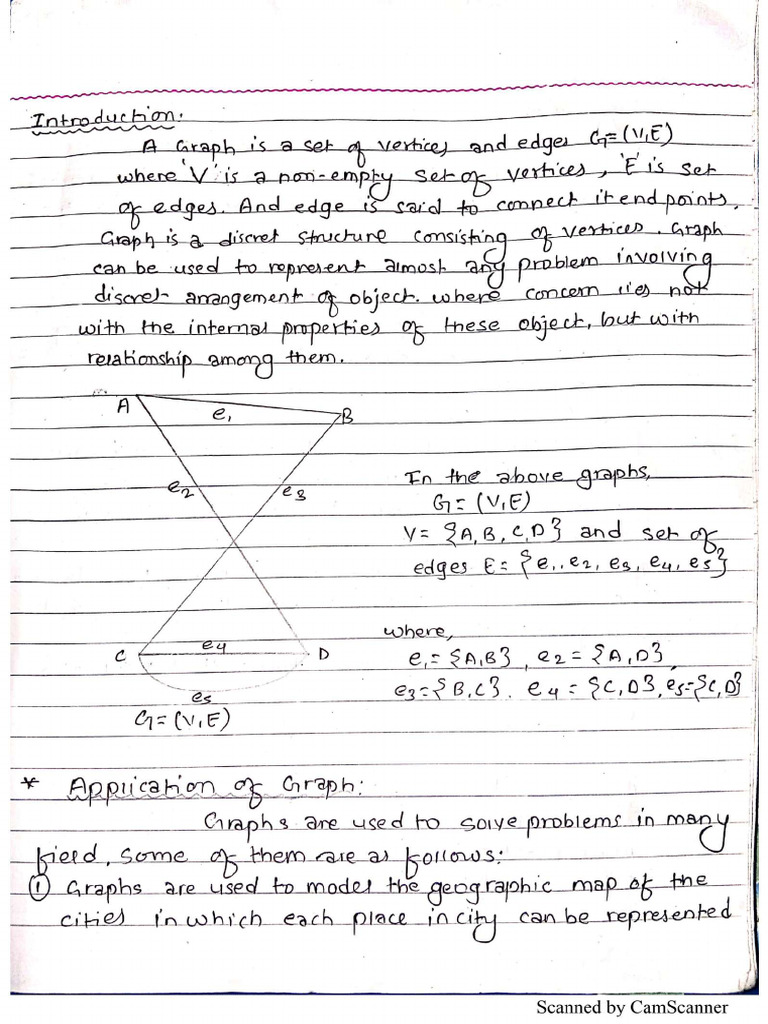 Introduction:
A Graph is a set of vertices and edges G=(V,E)
where 'V' is a non-empty set of vertices, 'E' is set
of edges. And edge is said to connect it endpoints.
Graph is a discret structure consisting of vertices. Graph
can be used to represent almost any problem involving
discret arrangement of object. where concern lies not
with the internal properties of these object, but with
relationship among them.
A
e1
B
e2
e3
In the above graphs,
G = (V,E)
V = {A, B, C, D} and set of
edges E = {e1, e2, e3, e4, e5}
where,
C
e4
D
e1 = {A,B}, e2 = {A,D},
e3={B,C}. e4 = {C,D}, e5={C,D}
e5
G=(V,E)
* Application of Graph:
Graphs are used to solve problems in many
field, some of them are as follows:
① Graphs are used to model the geographic map of the
cities in which each place in city can be represented
Scanned by CamScanner